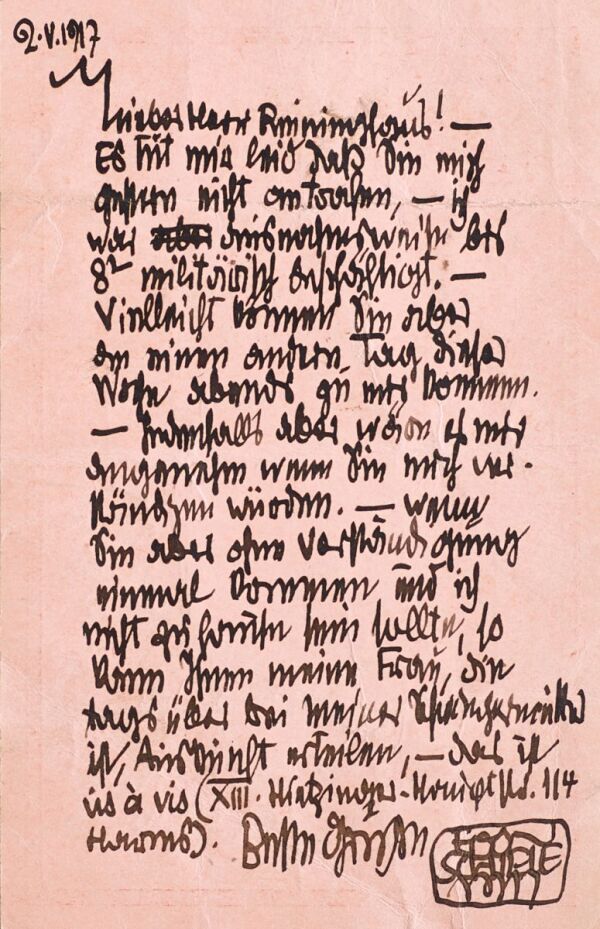 2.V.1917
Lieber Herr Reininghaus! —
Es tut mir leid daß Sie mich
gestern nicht antrafen, — ich
war aber ausnahmsweise bis
8h militärisch beschäftigt. —
Vielleicht können Sie aber
an einen andern Tag dieser
Woche abends zu mir kommen.
— Jedenfalls aber wäre es mir
angenehm wenn Sie mich ver-
ständigen würden. — wenn
Sie aber ohne Verständigung
einmal kommen und ich
nicht zuhause sein sollte, so
kann Ihnen meine Frau, die
tags über bei meiner
ist, Auskunft erteilen, — das ist
vis à vis (XIII. Hietzinger-Hauptstr. 114
Harms). Beste Grüße
EGON
SCHIELE